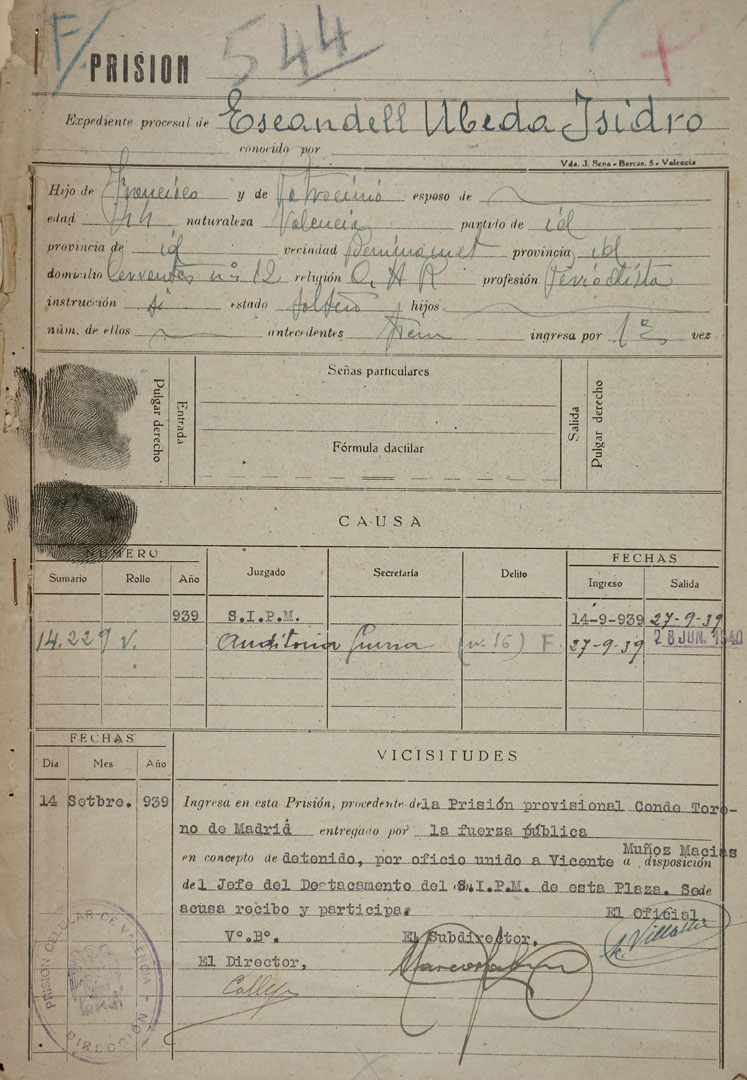 F/ PRISION 544
Expediente procesal de Escandell Ubeda Isidro
conocido por
Vda. J. Sena - Barcas, 5 - Valencia
Hijo de Francisco y de Patrocinio esposo de
edad naturaleza Valencia partido de id
provincia de id vecindad Benimamet provincia id
domicilio Cervantes nº 12 religión C. A. R. profesión Periodista
instrucción si estado soltero hijos
núm. de ellos antecedentes ingresa por 1ª vez
Señas particulares
Pulgar derecho
Entrada
Salida
Pulgar derecho
Fórmula dactilar
CAUSA
NUMERO FECHAS
Sumario Rollo Año Juzgado Secretaría Delito Ingreso Salida
939 S.I.P.M. 14-9-939 27-9-39
14.229 v. Auditoria Guerra (nº 16) F. 27-9-39 28 JUN. 1940
FECHAS
VICISITUDES
Día Mes Año
14 Setbre. 939 Ingresa en esta Prisión, procedente de la Prisión provisional Conde Tore-
no de Madrid entregado por la fuerza pública
en concepto de detenido, por oficio unido a Vicente Muñoz Macias a disposición
del Jefe del Destacamento del S.I.P.M. de esta Plaza. Sede
acusa recibo y participa. El Oficial
Vº.Bº. El Subdirector,
El Director,
PRISION CELULAR DE VALENCIA
DIRECCION